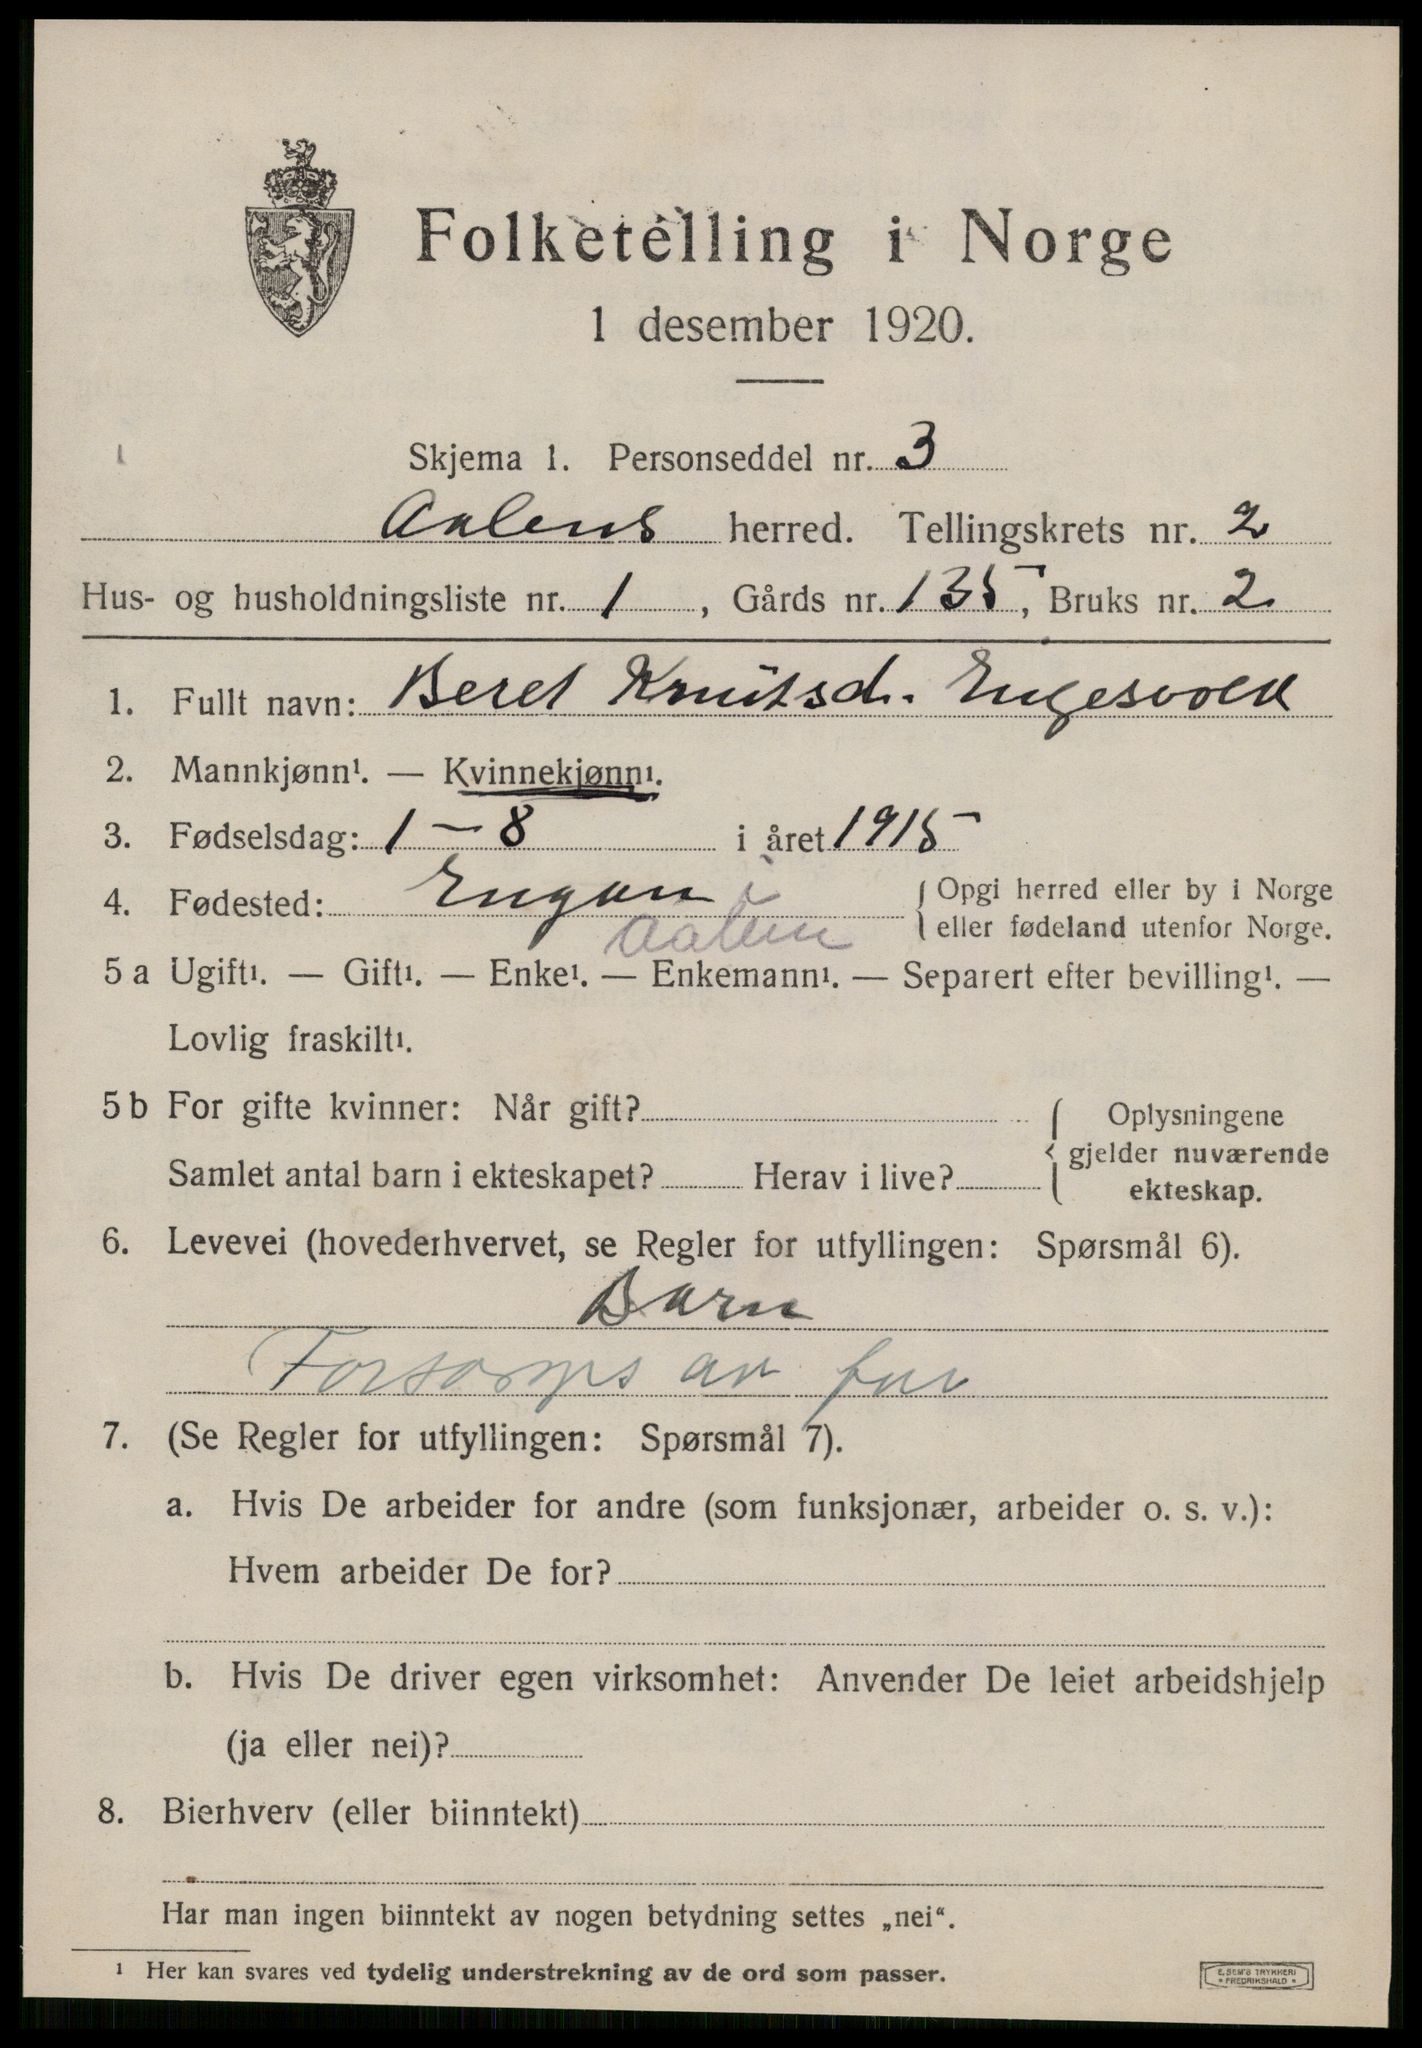 Folketelling i Norge
1 desember 1920.
Skjema 1. Personseddel nr. 3
Aalens herred. Tellingskrets nr. 2
Hus- og husholdningsliste nr. 1, Gårds nr. 135, Bruks nr. 2
1. Fullt navn: Beret Knutsd. Engesvold
2. Mannkjønn¹. — Kvinnekjønn¹.
3. Fødselsdag: 1 — 8 i året 1915
4. Fødested: Engan i { Opgi herred eller by i Norge
Aalen eller fødeland utenfor Norge.
5 a Ugift¹. — Gift¹. — Enke¹. — Enkemann¹. — Separert efter bevilling¹. —
Lovlig fraskilt¹.
5 b For gifte kvinner: Når gift? { Oplysningene
gjelder nuværende
Samlet antal barn i ekteskapet? Herav i live? ekteskap.
6. Levevei (hovederhvervet, se Regler for utfyllingen: Spørsmål 6).
Barn
Forsørges av far
7. (Se Regler for utfyllingen: Spørsmål 7).
a. Hvis De arbeider for andre (som funksjonær, arbeider o. s. v.):
Hvem arbeider De for?
b. Hvis De driver egen virksomhet: Anvender De leiet arbeidshjelp
(ja eller nei)?
8. Bierhverv (eller biinntekt)
Har man ingen biinntekt av nogen betydning settes „nei“.
¹ Her kan svares ved tydelig understrekning av de ord som passer.
E. SEM'S TRYKKERI
• FREDRIKSHALD •